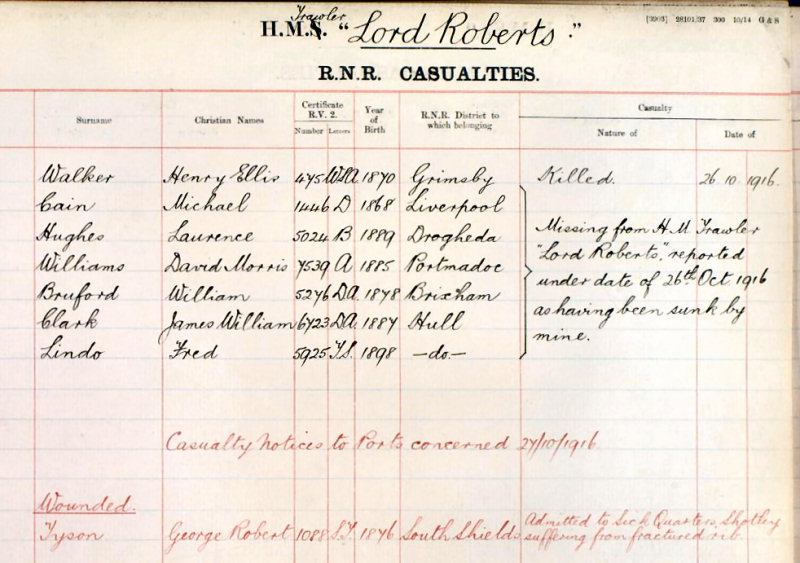 [3903] 28101/37 300 10/14 G & S
Trawler
H.M.S. "Lord Roberts."
R.N.R. CASUALTIES.
Surname Christian Names Certificate R.V. 2. Year of Birth R.N.R. District to which belonging Casualty
Number Letters Nature of Date of
Walker Henry Ellis 475 WSA 1870 Grimsby Killed. 26.10.1916.
Cain Michael 1446 D 1868 Liverpool
Hughes Laurence 5024 B 1889 Drogheda Missing from H.M. Trawler
Williams David Morris 7539 A 1885 Portmadoc "Lord Roberts", reported
under date of 26th Oct. 1916
Bruford William 5276 DA 1878 Brixham
as having been sunk by
Clark James William 6723 DA 1887 Hull
mine.
Lindo Fred 5925 T.S. 1898 —do.—
Casualty Notices to Ports concerned 27/10/1916
Wounded.
Admitted to Sick Quarters, Shotley
Tyson George Robert 1088 S.T. 1876 South Shields suffering from fractured rib.